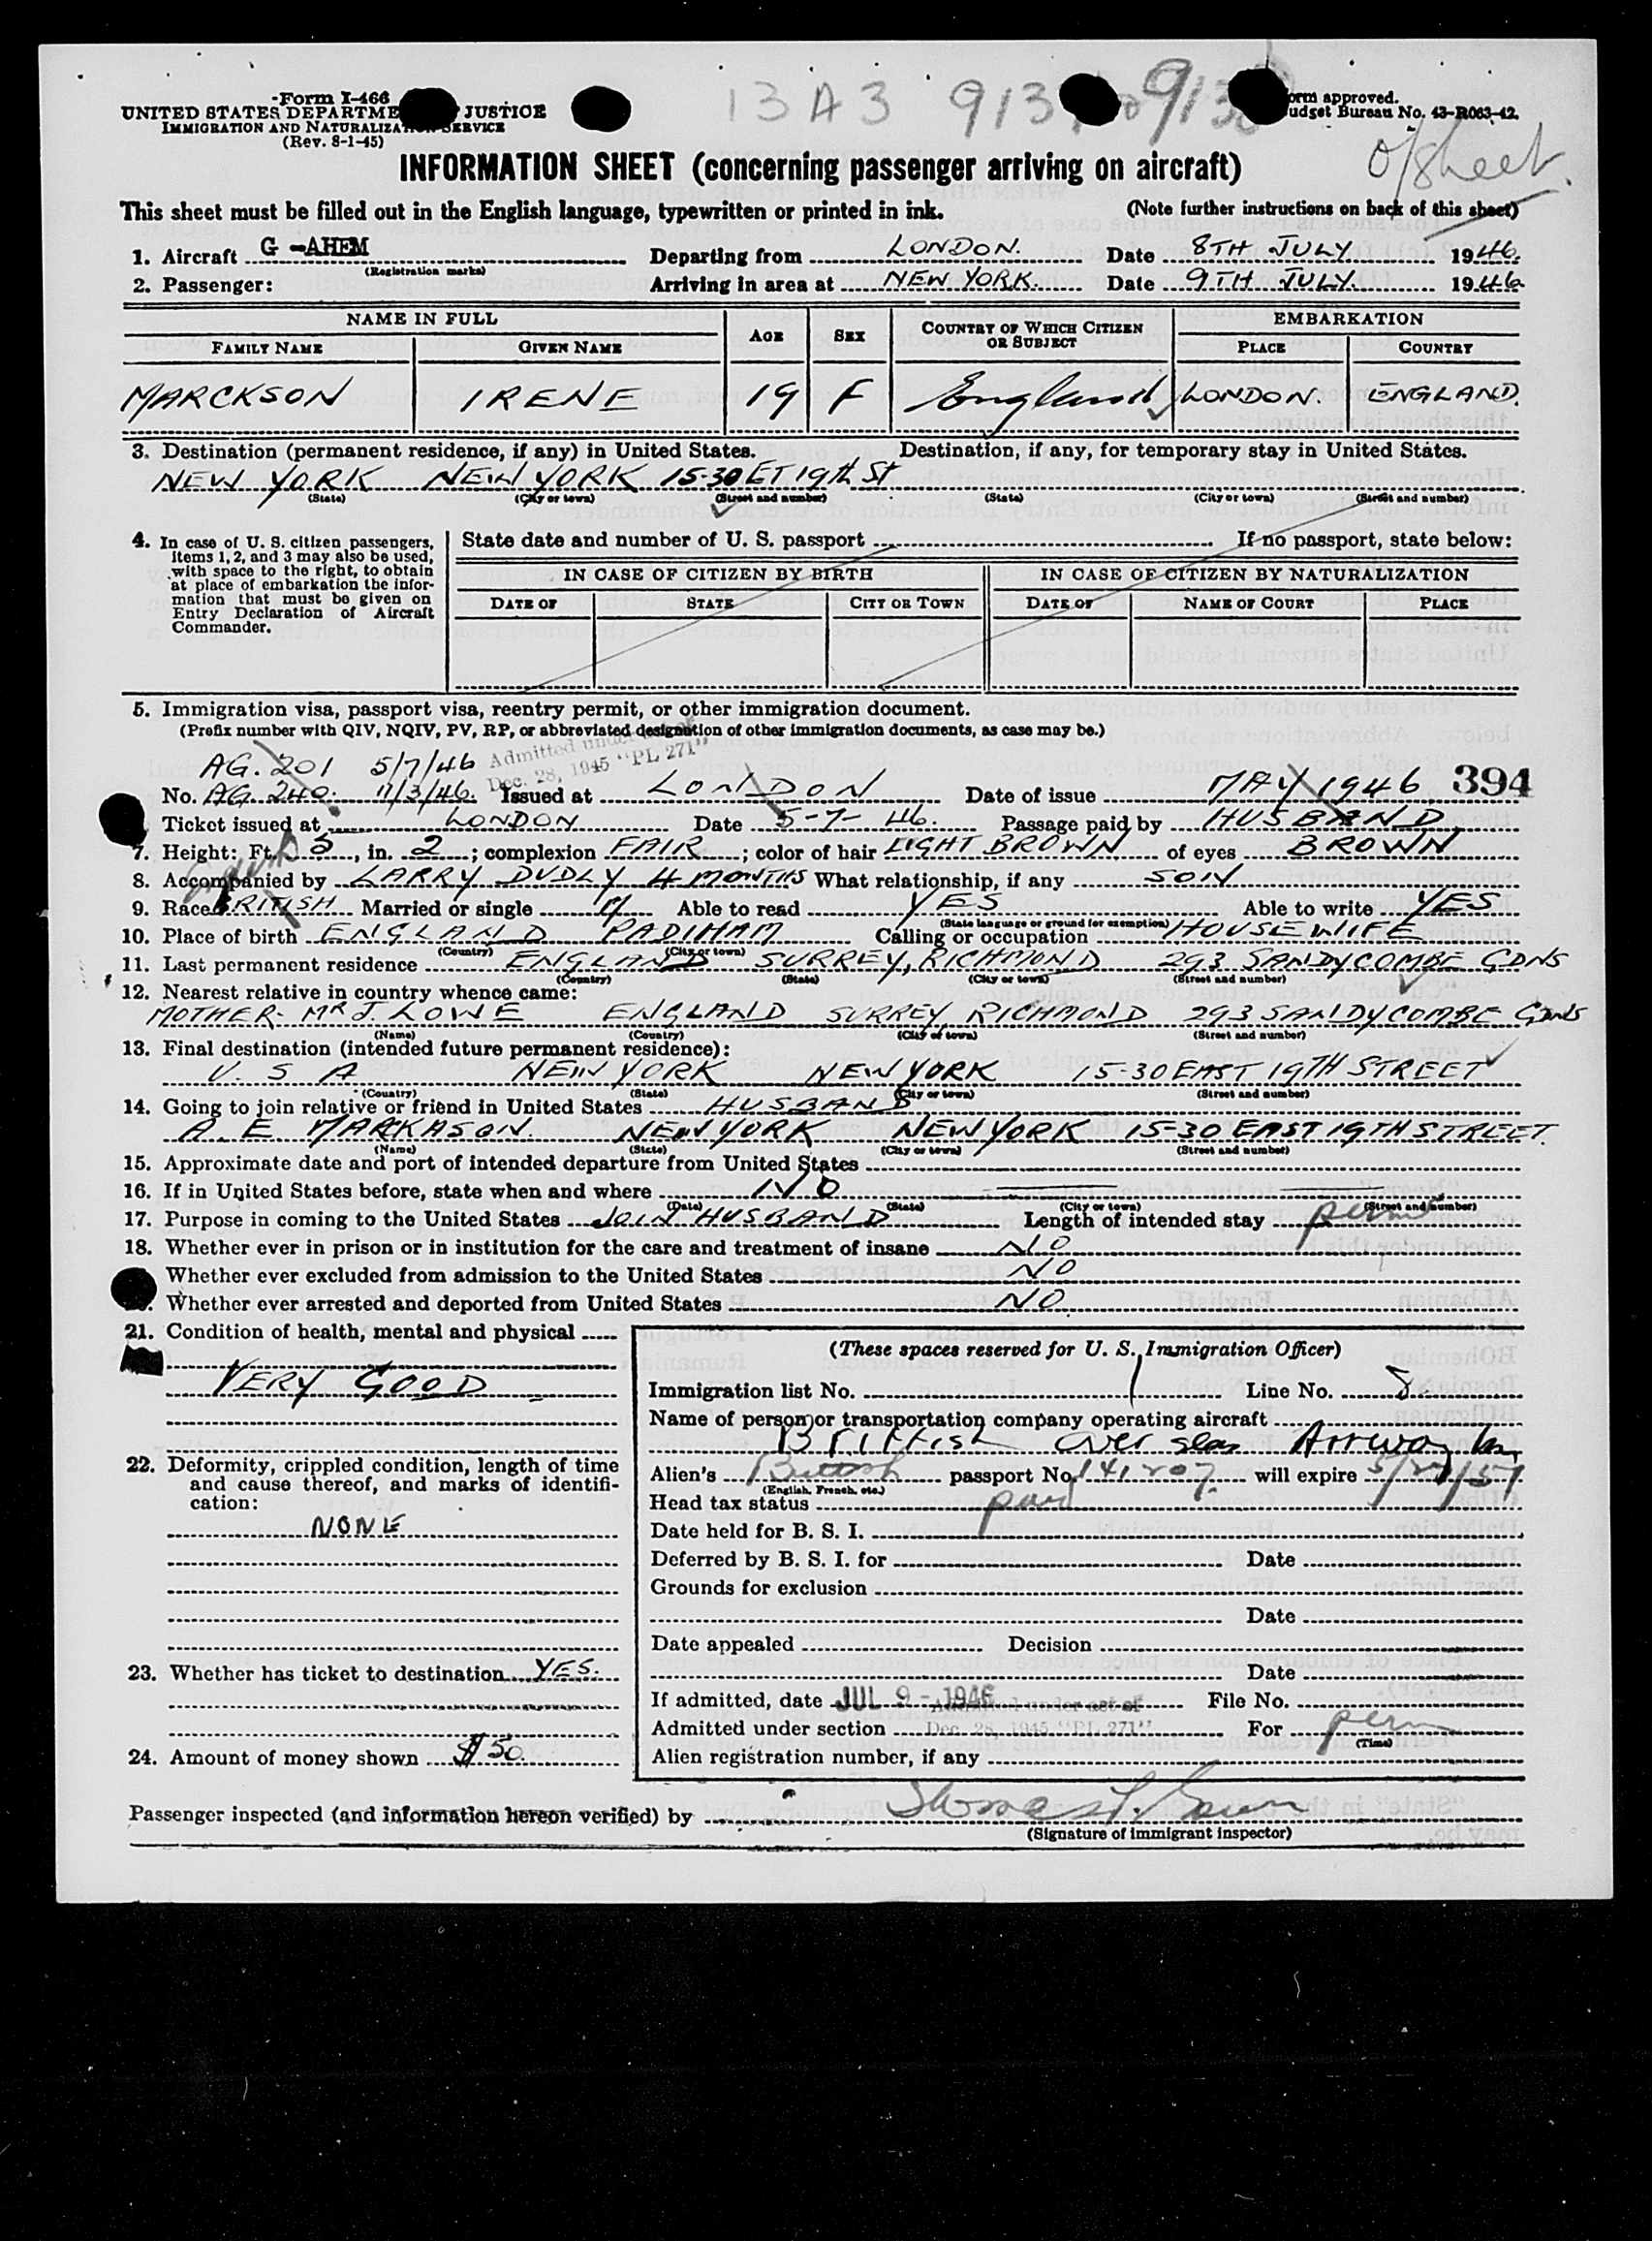 13 A 3 913
Form I-466
UNITED STATES DEPARTME JUSTICE
IMMIGRATION AND NATURALIZATION SERVICE
(Rev. 8-1-45)
orm approved.
udget Bureau No. 43-R063-42.
O/Sheet.
INFORMATION SHEET (concerning passenger arriving on aircraft)
This sheet must be filled out in the English language, typewritten or printed in ink. (Note further instructions on back of this sheet)
1. Aircraft G-AHEM Departing from LONDON. Date 8TH JULY 1946.
(Registration marks)
2. Passenger: Arriving in area at NEW YORK. Date 9TH JULY. 1946
NAME IN FULL AGE SEX COUNTRY OF WHICH CITIZEN OR SUBJECT EMBARKATION
FAMILY NAME GIVEN NAME PLACE COUNTRY
MARCKSON IRENE 19 F England LONDON. ENGLAND.
3. Destination (permanent residence, if any) in United States. Destination, if any, for temporary stay in United States.
NEW YORK NEW YORK 15-30 ET 19th St
(State) (City or town) (Street and number) (State) (City or town) (Street and number)
4. In case of U. S. citizen passengers, items 1, 2, and 3 may also be used, with space to the right, to obtain at place of embarkation the information that must be given on Entry Declaration of Aircraft Commander.
State date and number of U. S. passport If no passport, state below:
IN CASE OF CITIZEN BY BIRTH IN CASE OF CITIZEN BY NATURALIZATION
DATE OF STATE CITY OR TOWN DATE OF NAME OF COURT PLACE
5. Immigration visa, passport visa, reentry permit, or other immigration document.
(Prefix number with QIV, NQIV, PV, RP, or abbreviated designation of other immigration documents, as case may be.)
AG. 201 5/7/46 Admitted under act of
Dec. 28, 1945 "PL 271"
No. AG 240. 11/3/46. Issued at LONDON Date of issue MAY 1946 394
Ticket issued at LONDON Date 5-7-46. Passage paid by HUSBAND
7. Height: Ft. 5, in. 2; complexion FAIR; color of hair LIGHT BROWN of eyes BROWN
8. Accompanied by LARRY DUDLY 4 MONTHS What relationship, if any SON
9. Race BRITISH Married or single M Able to read YES Able to write YES
(State language or ground for exemption)
10. Place of birth ENGLAND PADIHAM Calling or occupation HOUSEWIFE
(Country) (City or town)
11. Last permanent residence ENGLAND SURREY, RICHMOND 293 SANDYCOMBE GDNS
(Country) (State) (City or town) (Street and number)
12. Nearest relative in country whence came:
MOTHER- MR J. LOWE ENGLAND SURREY RICHMOND 293 SANDYCOMBE GDNS
(Name) (Country) (City or town) (Street and number)
13. Final destination (intended future permanent residence):
U. S A NEW YORK NEW YORK 15-30 EAST 19TH STREET
(Country) (State) (City or town) (Street and number)
14. Going to join relative or friend in United States HUSBAND
A. E MARKASON. NEW YORK NEW YORK 15-30 EAST 19TH STREET.
(Name) (State) (City or town) (Street and number)
15. Approximate date and port of intended departure from United States
16. If in United States before, state when and where NO
(Date) (State) (City or town) (Street and number)
17. Purpose in coming to the United States JOIN HUSBAND Length of intended stay perm
18. Whether ever in prison or in institution for the care and treatment of insane NO
Whether ever excluded from admission to the United States NO
Whether ever arrested and deported from United States NO
21. Condition of health, mental and physical
VERY GOOD
22. Deformity, crippled condition, length of time and cause thereof, and marks of identification:
NONE
23. Whether has ticket to destination YES.
24. Amount of money shown $50.
(These spaces reserved for U. S. Immigration Officer)
Immigration list No. 1 Line No. 8
Name of person or transportation company operating aircraft
Brittish Over seas Airway
Alien's British passport No. 141207 will expire 5/27/57
(English, French, etc.)
Head tax status paid
Date held for B. S. I.
Deferred by B. S. I. for Date
Grounds for exclusion
Date
Date appealed Decision
Date
If admitted, date JUL 9 - 1946 File No.
Admitted under act of
Admitted under section Dec. 28, 1945 "PL 271" For perm
(Time)
Alien registration number, if any
Passenger inspected (and information hereon verified) by
(Signature of immigrant inspector)